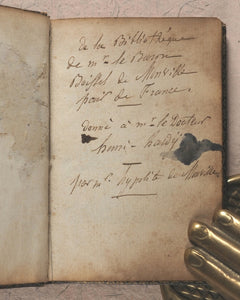 de la Bibliothéque
de mr le Baron
Boissel de Monville
pair de France.
donné à mr le Docteur
henri hardÿ
par mr hypolite de Monville